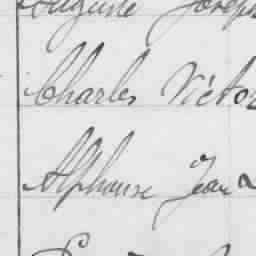 Auguste Joseph
Charles Victor
Alphonse Jean